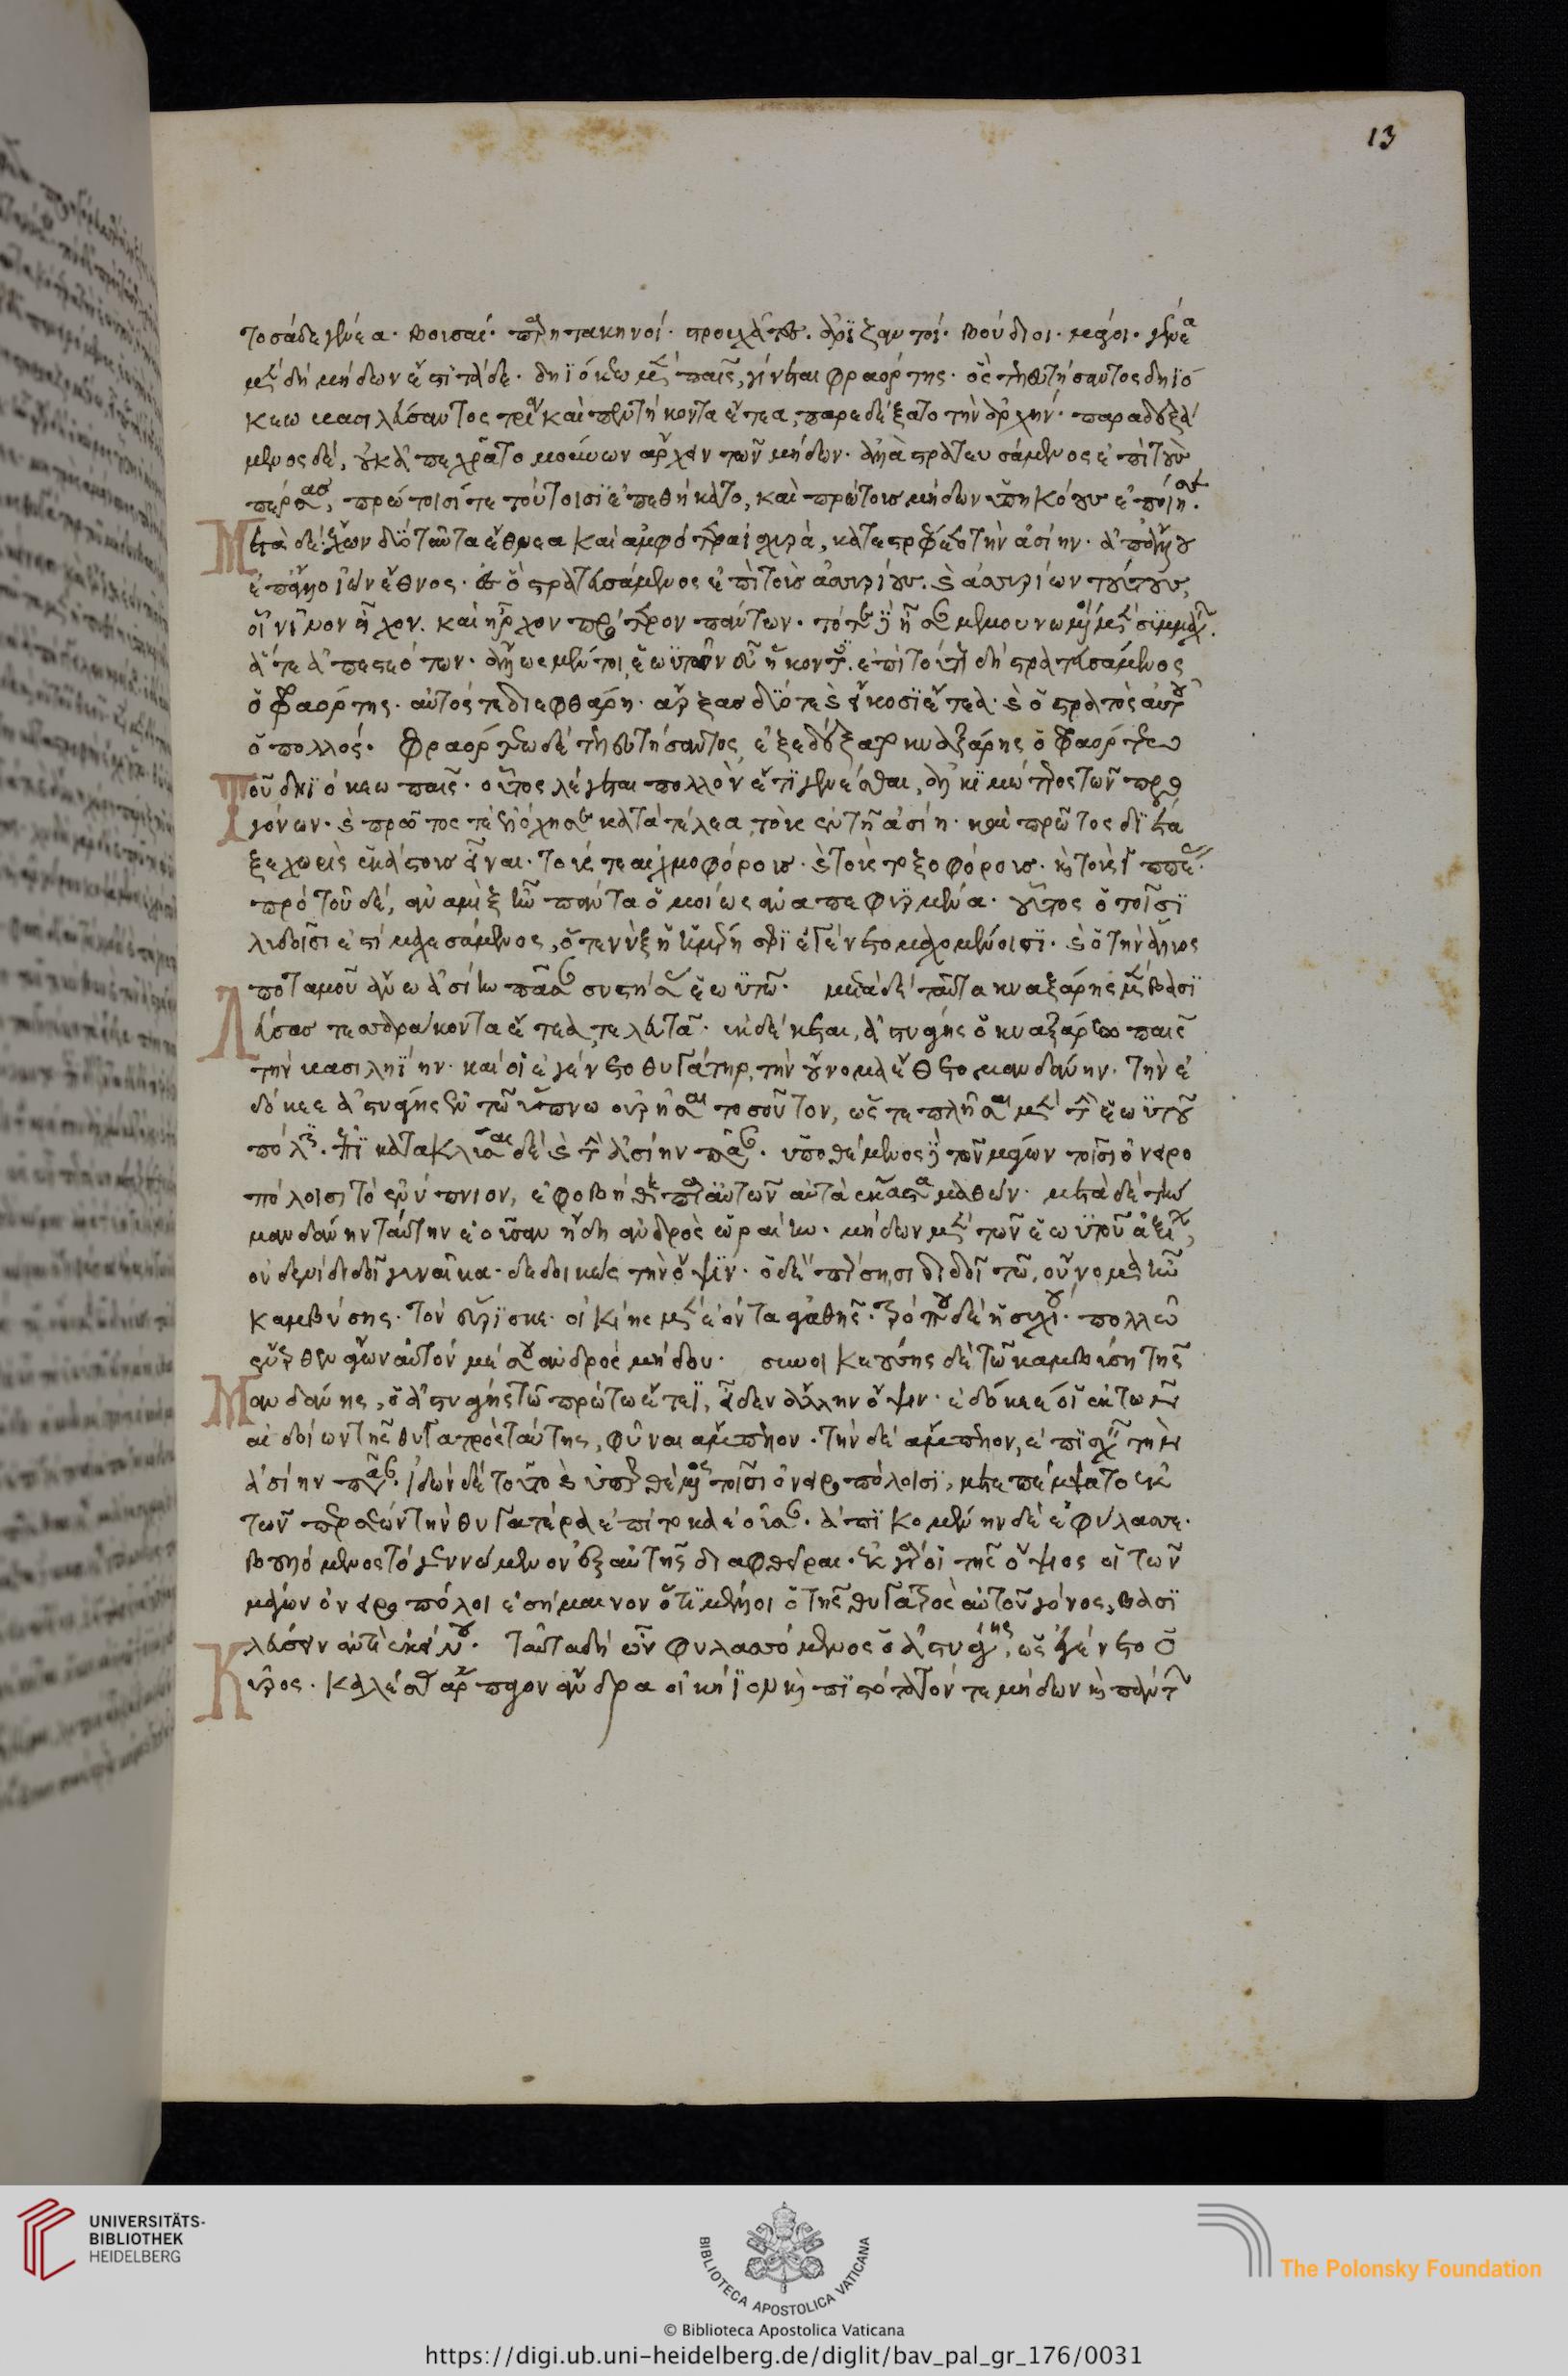 13
τοσάδε γένεα. βουσαί. παρητακηνοί. στρουχάτες. ἀριζαντοί. βούδιοι. μάγοι. γένεα
μὲν δὴ μήδων ἐστὶ τάδε. δηϊόκεω μὲν παῖς, γίνεται φραόρτης. ὃς τελευτήσαντος δηϊό
κεω βασιλεύσαντος τρία καὶ πεντήκοντα ἔτεα, παρεδέξατο τὴν ἀρχήν. παραδεξά
μενος δέ, οὐκ ἀπεχρᾶτο μούνων ἄρχειν τῶν μήδων. ἀλλὰ στρατευσάμενος ἐπὶ τοὺς
πέρσας, πρώτοισί τε τούτοισι ἐπεθήκατο, καὶ πρώτους μήδων ὑπηκόους ἐποίησε.
Μετὰ δὲ ἔχων δύο ταῦτα ἔθνεα καὶ ἀμφότερα ἰσχυρά, κατεστρέφετο τὴν ἀσίην. ἀπ' ἄλλου
ἐπ' ἄλλο ἰὼν ἔθνος. ἐς ὃ στρατευσάμενος ἐπὶ τοὺς ἀσσυρίους. καὶ ἀσσυρίων τούτους,
οἳ νῖνον εἶχον. καὶ ἦρχον πρότερον πάντων. τότε δὲ ἦσαν μεμουνωμένοι μὲν συμμάχων.
ἅτε ἀπεστεώτων. ἄλλως μέντοι ἑωυτῶν εὖ ἥκοντες. ἐπὶ τούτους δὴ στρατευσάμενος
ὁ φραόρτης. αὐτός τε διεφθάρη. ἄρξας δύο τε καὶ εἴκοσι ἔτεα. καὶ ὁ στρατὸς αὐτοῦ
ὁ πολλός. φραόρτεω δὲ τελευτήσαντος ἐξεδέξατο κυαξάρης ὁ φραόρτεω
Τοῦ δηϊόκεω παῖς. οὗτος λέγεται πολλὸν ἔτι γενέσθαι, ἀλκιμώτερος τῶν προ
γόνων. καὶ πρῶτος τε ἐλόχησε κατὰ τέλεα τοὺς ἐν τῇ ἀσίῃ. καὶ πρῶτος διέτα
ξε χωρὶς ἑκάστους εἶναι. τούς τε αἰχμοφόρους. καὶ τοὺς τοξοφόρους. καὶ τοὺς ἱππέας.
πρὸ τοῦ δέ, ἀναμὶξ ἦν πάντα ὁμοίως ἀναπεφυρμένα. οὗτος ὁ τοῖσι
λυδοῖσι ἐστὶ μαχεσάμενος, ὅτε νὺξ ἡ ἡμέρη σφι ἐγένετο μαχομένοισι. καὶ ὁ τὴν ἅλυος
ποταμοῦ ἄνω ἀσίην πᾶσαν συστήσας ἑωυτῷ. μετὰ δὲ ταῦτα κυαξάρης μὲν βασι
Λεύσας τεσσεράκοντα ἔτεα, τελευτᾷ. ἐκδέκεται, ἀστυάγης ὁ κυαξάρεω παῖς
τὴν βασιληίην. καὶ οἱ ἐγένετο θυγάτηρ, τὴν οὔνομα ἔθετο μανδάνην. τὴν ἐ
δόκεε ἀστυάγης ἐν τῷ ὕπνῳ οὐρῆσαι τοσοῦτον, ὥς τε πλῆσαι μὲν τὴν ἑωυτοῦ
πόλιν. ἐπικατακλύσαι δὲ καὶ τὴν ἀσίην πᾶσαν. ὑποθέμενος δὲ τῶν μάγων τοῖσι ὀνειρο
πόλοισι τὸ ἐνύπνιον, ἐφοβήθη παρ' αὐτῶν αὐτὰ ἕκαστα μαθών. μετὰ δὲ τὴν
μανδάνην ταύτην ἐοῦσαν ἤδη ἀνδρὸς ὡραίην. μήδων μὲν τῶν ἑωυτοῦ ἀξίων,
οὐδενὶ διδοῖ γυναῖκα. δεδοικὼς τὴν ὄψιν. ὁ δὲ πέρσῃσι διδοῖ τῷ, οὔνομα ἦν
καμβύσης. τὸν εὕρισκε οἰκίης μὲν ἐόντα ἀγαθῆς. τρόπου δὲ ἡσυχίου. πολλῷ
ἔνερθεν ἄγων αὐτὸν μέσου ἀνδρὸς μήδου. συνοικεούσης δὲ τῷ καμβύσῃ τῆς
Μανδάνης, ὁ ἀστυάγης τῷ πρώτῳ ἔτεϊ, εἶδεν ἄλλην ὄψιν. ἐδόκεέ οἱ ἐκ τῶν
αἰδοίων τῆς θυγατρὸς ταύτης, φῦναι ἄμπελον. τὴν δὲ ἄμπελον, ἐπισχεῖν τὴν
ἀσίην πᾶσαν. ἰδὼν δὲ τοῦτο καὶ ὑπερθέμενος τοῖσι ὀνειροπόλοισι, μετεπέμψατο ἐκ
τῶν περσέων τὴν θυγατέρα ἐπίτοκα ἐοῦσαν. ἀπικομένην δὲ ἐφύλασσε.
βουλόμενος τὸ γεννώμενον ἐξ αὐτῆς διαφθεῖραι. ἐκ γάρ οἱ τῆς ὄψιος οἱ τῶν
μάγων ὀνειροπόλοι ἐσήμαινον ὅτι μέλλοι ὁ τῆς θυγατρὸς αὐτοῦ γόνος, βασι
λεύσειν ἀντὶ ἐκείνου. ταῦτα δὴ ὦν φυλασσόμενος ὁ ἀστυάγης, ὡς ἐγένετο ὁ
Κῦρος. καλέσας ἅρπαγον ἄνδρα οἰκήιον καὶ πιστότατόν τε μήδων καὶ πάντων
UNIVERSITÄTS-
BIBLIOTHEK
HEIDELBERG
BIBLIOTECA APOSTOLICA VATICANA
The Polonsky Foundation
© Biblioteca Apostolica Vaticana
https://digi.ub.uni-heidelberg.de/diglit/bav_pal_gr_176/0031